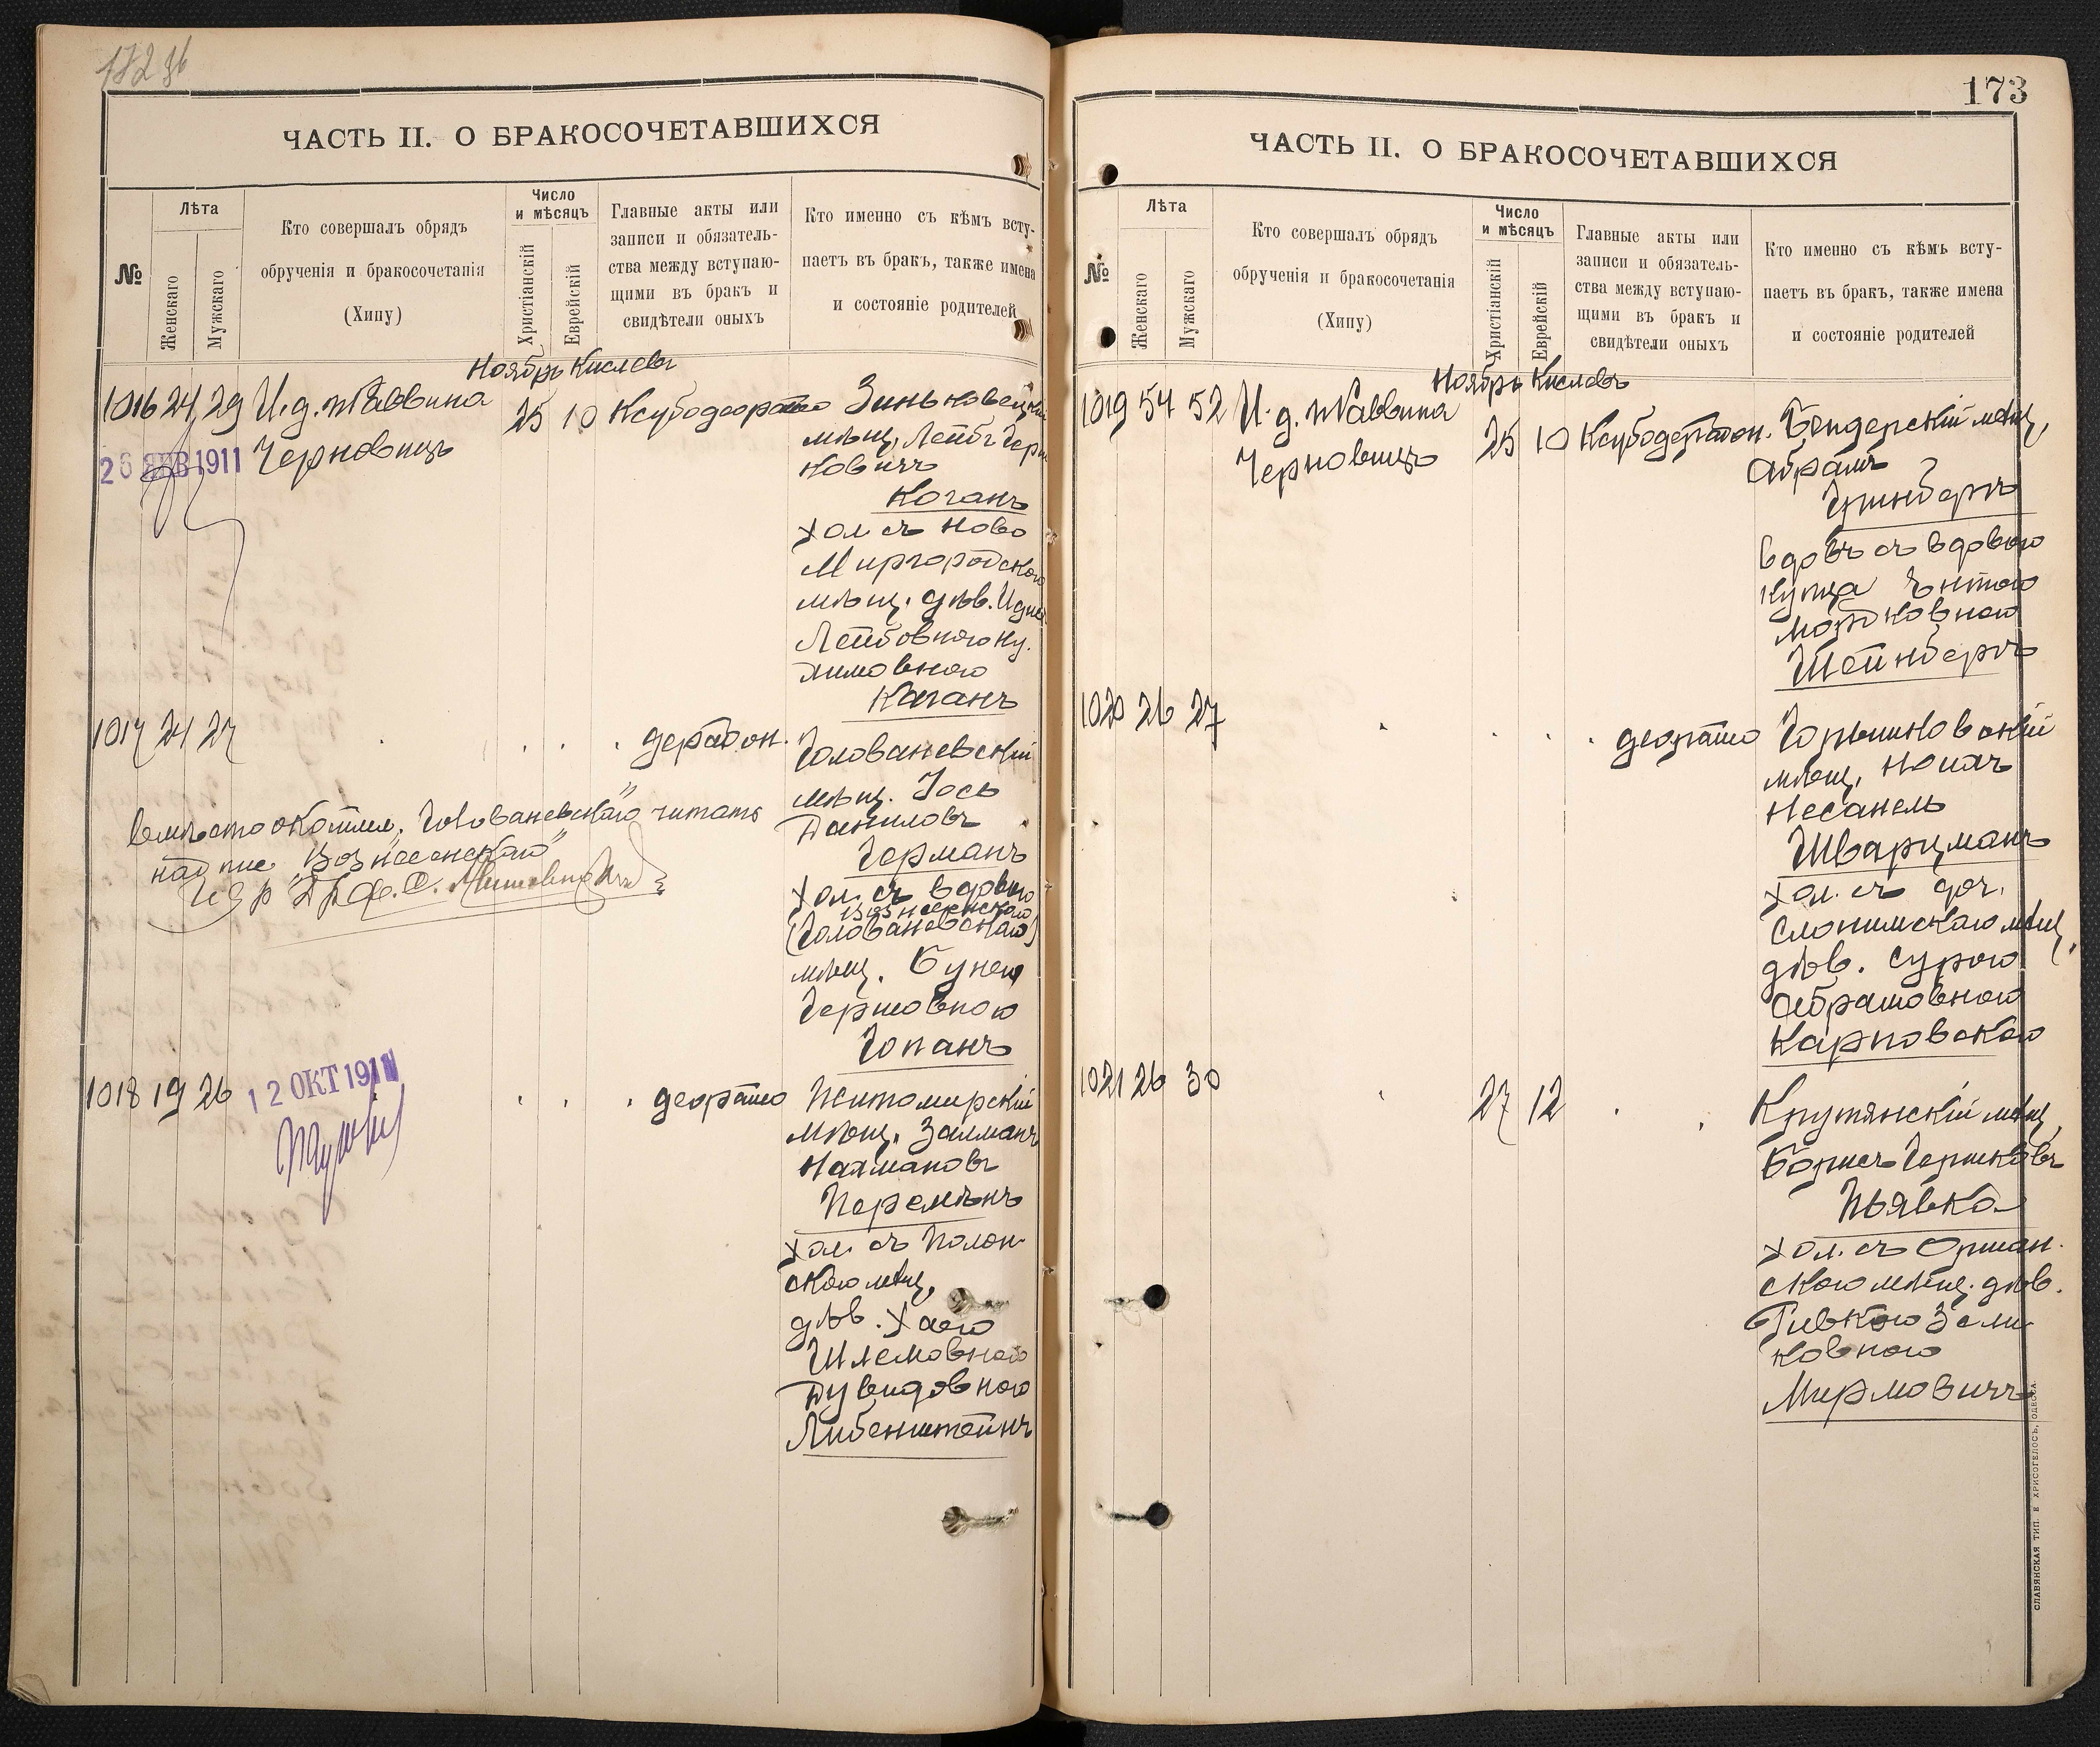 ЧАСТЬ II. О БРАКОСОЧЕТАВШИХСЯ
№
Лѣта
Женскаго
Мужскаго
Кто совершалъ обрядъ
обрученія и бракосочетанія
(Хипу)
Число
и мѣсяцъ
Христіанскій
Еврейскій
Главные акты или
записи и обязатель-
ства между вступаю-
щими въ бракъ и
свидѣтели оныхъ
Кто именно съ кѣмъ всту-
паетъ въ бракъ, также имена
и состояніе родителей
Ноябрь Кислевъ
1016 24 29 И. д. Раввина
Черновицъ
26 ЯНВ 1911
25 10
Зиньковецкій
мѣщ. Лейбъ
Коганъ
хол. съ Ново
Миргородскою
мѣщ. дѣв.
Лейбовною
Каганъ
1017 24 27
Голованевскій
мѣщ. Іось
Даниловъ
Германъ
хол. съ вдовою
Вознесенскаго
(Голованевскаго)
мѣщ. Бунею
Гершовною
Гопанъ
вмѣсто Голованевскаго читать
надпис. "Вознесенскаго"
1018 19 26
12 ОКТ 1911
Житомирскій
мѣщ. Залманъ
Нахмановъ
Перемѣнъ
хол. съ Полон-
скою мѣщ.
дѣв. Хаею
Шлемовною
Дувидовною
Либенштейнъ
173
ЧАСТЬ II. О БРАКОСОЧЕТАВШИХСЯ
№
Лѣта
Женскаго
Мужскаго
Кто совершалъ обрядъ
обрученія и бракосочетанія
(Хипу)
Число
и мѣсяцъ
Христіанскій
Еврейскій
Главные акты или
записи и обязатель-
ства между вступаю-
щими въ бракъ и
свидѣтели оныхъ
Кто именно съ кѣмъ всту-
паетъ въ бракъ, также имена
и состояніе родителей
Ноябрь Кислевъ
1019 54 52 И. д. Раввина
Черновицъ
25 10
Бендерскій мѣщ.
Абрамъ
Гринбергъ
вдовъ съ вдовою
купца
Мордковною
Штейнбергъ
1020 26 27
мѣщ.
Несанель
Шварцманъ
хол. съ доч.
Слонимскаго мѣщ.
дѣв. Сурою
Абрамовною
Карповскою
1021 26 30
27 12
Крутянскій мѣщ.
Борисъ Гершковъ
Пьявка
хол. съ Оршан-
скою мѣщ. дѣв.
Ривкою Зели-
ковною
Мирмовичъ
СЛАВЯНСКАЯ ТИП. Е ХРИСОГЕЛОСЪ, ОДЕССА.